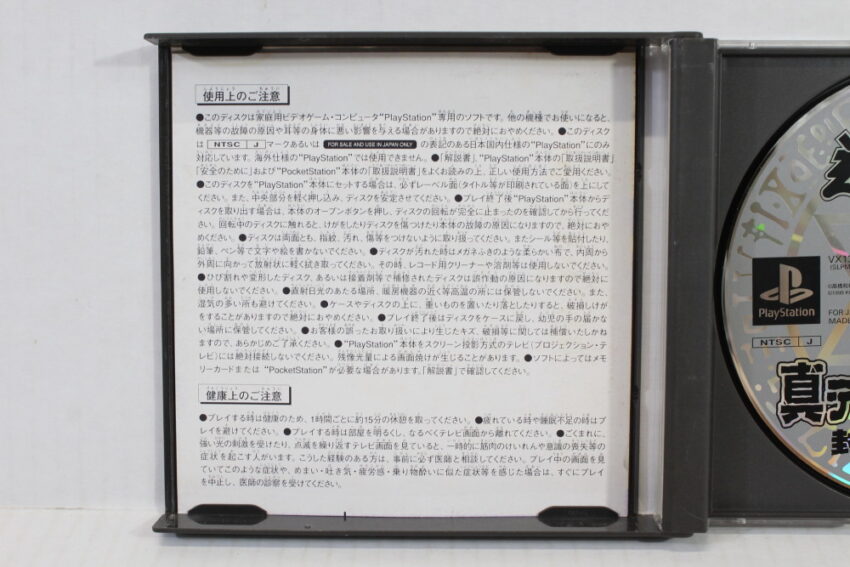 使用上のご注意
●このディスクは家庭用ビデオゲーム・コンピュータ“PlayStation”専用のソフトです。他の機種でお使いになると、
機器等の故障の原因や耳等の身体に悪い影響を与える場合がありますので絶対におやめください。●このディスク
は NTSC J マークあるいは FOR SALE AND USE IN JAPAN ONLY の表記のある日本国内仕様の“PlayStation”にのみ
対応しています。海外仕様の“PlayStation”では使用できません。●「解説書」、“PlayStation”本体の「取扱説明書」
「安全のために」および“PocketStation”本体の「取扱説明書」をよくお読みの上、正しい使用方法でご愛用ください。
●このディスクを“PlayStation”本体にセットする場合は、必ずレーベル面(タイトル等が印刷されている面)を上にして
ください。また、中央部分を軽く押し込み、ディスクを安定させてください。●プレイ終了後“PlayStation”本体からデ
ィスクを取り出す場合は、本体のオープンボタンを押し、ディスクの回転が完全に止まったのを確認してから行ってくだ
さい。回転中のディスクに触れると、けがをしたりディスクを傷つけたり本体の故障の原因になりますので、絶対におや
めください。●ディスクは両面とも、指紋、汚れ、傷等をつけないように取り扱ってください。またシール等を貼付したり、
鉛筆、ペン等で文字や絵を書かないでください。●ディスクが汚れた時はメガネふきのような柔らかい布で、内周から
外周に向かって放射状に軽く拭き取ってください。その時、レコード用クリーナーや溶剤等は使用しないでください。
●ひび割れや変形したディスク、あるいは接着剤等で補修されたディスクは誤作動の原因になりますので絶対に
使用しないでください。●直射日光のあたる場所、暖房機器の近く等高温の所には保管しないでください。また、
湿気の多い所も避けてください。●ケースやディスクの上に、重いものを置いたり落としたりすると、破損しけが
をすることがありますので絶対におやめください。●プレイ終了後はディスクをケースに戻し、幼児の手の届か
ない場所に保管してください。●お客様の誤ったお取り扱いにより生じたキズ、破損等に関しては補償いたしかね
ますので、あらかじめご了承ください。●“PlayStation”本体をスクリーン投影方式のテレビ(プロジェクション・テ
レビ)には絶対接続しないでください。残像光量による画面焼けが生じることがあります。●ソフトによってはメモ
リーカードまたは“PocketStation”が必要な場合があります。「解説書」で確認してください。
健康上のご注意
●プレイする時は健康のため、1時間ごとに約15分の休憩を取ってください。●疲れている時や睡眠不足の時はプレ
イを避けてください。●プレイする時は部屋を明るくし、なるべくテレビ画面から離れてください。●ごくまれに、
強い光の刺激を受けたり、点滅を繰り返すテレビ画面を見ていると、一時的に筋肉のけいれんや意識の喪失等の
症状を起こす人がいます。こうした経験のある方は、事前に必ず医師と相談してください。プレイ中の画面を見
ていてこのような症状や、めまい・吐き気・疲労感・乗り物酔いに似た症状等を感じた場合は、すぐにプレイ
を中止し、医師の診察を受けてください。
PlayStation
NTSC J
FOR J
MADE
真デ
封